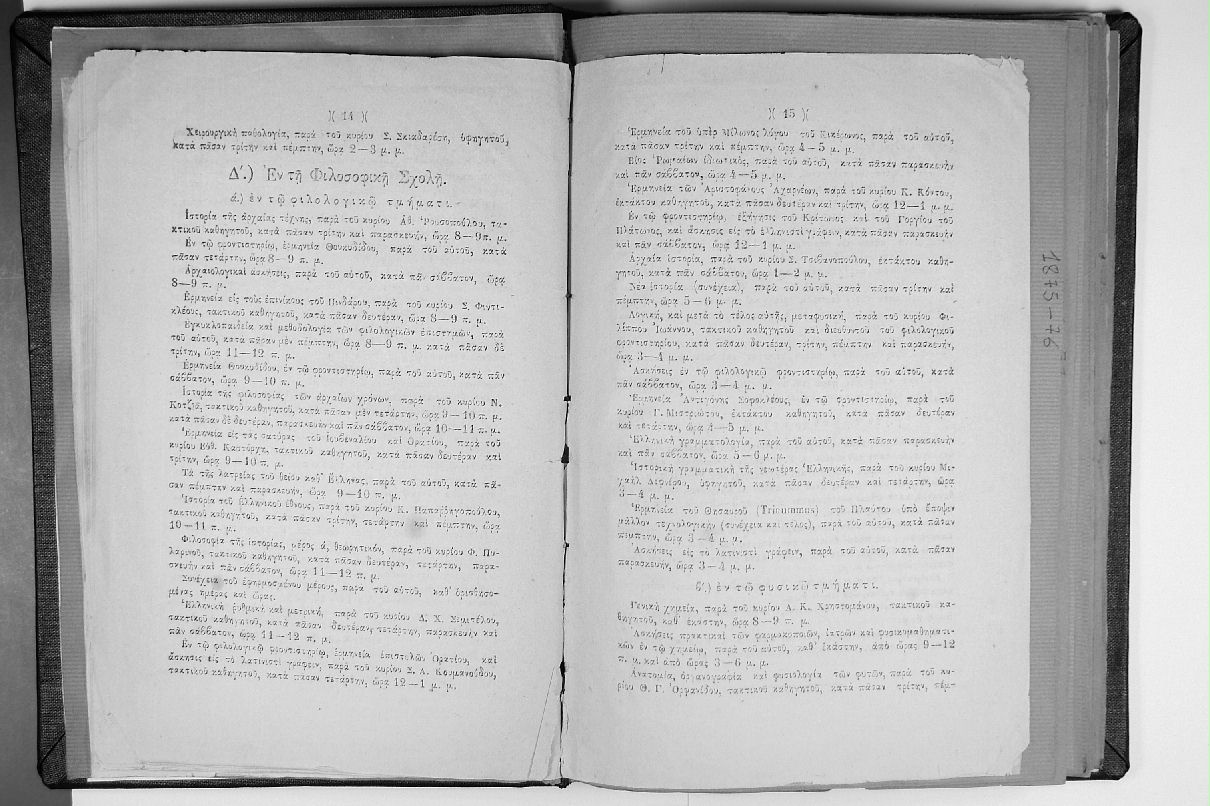 )( 14 )(
Χειρουργικὴ παθολογία, παρὰ τοῦ κυρίου Σ. Σκιαδαρέση, ὑφηγητοῦ,
κατὰ πᾶσαν τρίτην καὶ πέμπτην, ὥρᾳ 2—3 μ. μ.
Δ΄.) Ἐν τῇ Φιλοσοφικῇ Σχολῇ.
ά.) ἐν τῷ φιλολογικῷ τμήματι.
Ἱστορία τῆς ἀρχαίας τέχνης, παρὰ τοῦ κυρίου Ἀθ. Ῥουσοπούλου, τα-
κτικοῦ καθηγητοῦ, κατὰ πᾶσαν τρίτην καὶ παρασκευήν, ὥρᾳ 8—9 π. μ.
Ἐν τῷ φροντιστηρίῳ, ἑρμηνεία Θουκυδίδου, παρὰ τοῦ αὐτοῦ, κατὰ
πᾶσαν τετάρτην, ὥρᾳ 8—9 π. μ.
Ἀρχαιολογικαὶ ἀσκήσεις, παρὰ τοῦ αὐτοῦ, κατὰ πᾶν σάββατον, ὥρᾳ
8—9 π. μ.
Ἑρμηνεία εἰς τοὺς ἐπινίκους τοῦ Πινδάρου, παρὰ τοῦ κυρίου Σ. Φιντι-
κλέους, τακτικοῦ καθηγητοῦ, κατὰ πᾶσαν δευτέραν, ὥρᾳ 8—9 π. μ.
Ἐγκυκλοπαιδεία καὶ μεθοδολογία τῶν φιλολογικῶν ἐπιστημῶν, παρὰ
τοῦ αὐτοῦ, κατὰ πᾶσαν μὲν πέμπτην, ὥρᾳ 8—9 π. μ. κατὰ πᾶσαν δὲ
τρίτην, ὥρᾳ 11—12 π. μ.
Ἑρμηνεία Θουκυδίδου, ἐν τῷ φροντιστηρίῳ, παρὰ τοῦ αὐτοῦ, κατὰ πᾶν
σάββατον, ὥρᾳ 9—10 π. μ.
Ἱστορία τῆς φιλοσοφίας τῶν ἀρχαίων χρόνων, παρὰ τοῦ κυρίου Ν.
Κοτζιᾶ, τακτικοῦ καθηγητοῦ, κατὰ πᾶσαν μὲν τετάρτην, ὥρᾳ 9—10 π. μ.
κατὰ πᾶσαν δὲ δευτέραν, παρασκευὴν καὶ πᾶν σάββατον, ὥρᾳ 10—11 π. μ.
Ἑρμηνεία εἰς τὰς σατύρας τοῦ Ἰουβεναλίου καὶ Ὁρατίου, παρὰ τοῦ
κυρίου Εὐθ. Καστόρχη, τακτικοῦ καθηγητοῦ, κατὰ πᾶσαν δευτέραν καὶ
τρίτην, ὥρᾳ 9—10 π. μ.
Τὰ τῆς λατρείας τοῦ θείου καθ' Ἕλληνας, παρὰ τοῦ αὐτοῦ, κατὰ πᾶ-
σαν πέμπτην καὶ παρασκευήν, ὥρᾳ 9—10 π. μ.
Ἱστορία τοῦ Ἑλληνικοῦ ἔθνους, παρὰ τοῦ κυρίου Κ. Παπαῤῥηγοπούλου,
τακτικοῦ καθηγητοῦ, κατὰ πᾶσαν τρίτην, τετάρτην καὶ πέμπτην, ὥρᾳ
10—11 π. μ.
Φιλοσοφία τῆς ἱστορίας, μέρος ά, θεωρητικόν, παρὰ τοῦ κυρίου Θ.
τακτικοῦ καθηγητοῦ, κατὰ πᾶσαν δευτέραν, τετάρτην, παρα-
σκευὴν καὶ πᾶν σάββατον, ὥρᾳ 11—12 π. μ.
Συνέχεια τοῦ ἐφηρμοσμένου μέρους, παρὰ τοῦ αὐτοῦ, καθ' ὁρισθησο-
μένας ἡμέρας καὶ ὥρας.
Ἑλληνικὴ ῥυθμικὴ καὶ μετρική, παρὰ τοῦ κυρίου Δ. Χ. Σεμιτέλου,
τακτικοῦ καθηγητοῦ, κατὰ πᾶσαν δευτέραν, τετάρτην, παρασκευὴν καὶ
πᾶν σάββατον, ὥρᾳ 11—12 π. μ.
Ἐν τῷ φιλολογικῷ φροντιστηρίῳ, ἑρμηνεία ἐπιστολῶν Ὁρατίου, καὶ
ἄσκησις εἰς τὸ λατινιστὶ γράφειν, παρὰ τοῦ κυρίου Σ. Α. Κουμανούδου,
τακτικοῦ καθηγητοῦ, κατὰ πᾶσαν τετάρτην, ὥρᾳ 12—1 μ. μ.
)( 15 )(
Ἑρμηνεία τοῦ ὑπὲρ Μίλωνος λόγου τοῦ Κικέρωνος, παρὰ τοῦ αὐτοῦ,
κατὰ πᾶσαν τρίτην καὶ πέμπτην, ὥρᾳ 4—5 μ. μ.
Βίος Ῥωμαίων ἰδιωτικός, παρὰ τοῦ αὐτοῦ, κατὰ πᾶσαν παρασκευὴν
καὶ πᾶν σάββατον, ὥρᾳ 4—5 μ. μ.
Ἑρμηνεία τῶν Ἀριστοφάνους Ἀχαρνέων, παρὰ τοῦ κυρίου Κ. Κόντου,
ἐκτάκτου καθηγητοῦ, κατὰ πᾶσαν δευτέραν καὶ τρίτην, ὥρᾳ 12—1 μ. μ.
Ἐν τῷ φροντιστηρίῳ, ἐξήγησις τοῦ Κρίτωνος καὶ τοῦ Γοργίου τοῦ
Πλάτωνος, καὶ ἄσκησις εἰς τὸ ἑλληνιστὶ γράφειν, κατὰ πᾶσαν παρασκευὴν
καὶ πᾶν σάββατον, ὥρᾳ 12—1 μ. μ.
Ἀρχαία ἱστορία, παρὰ τοῦ κυρίου Σ. Τσιβανοπούλου, ἐκτάκτου καθη-
γητοῦ, κατὰ πᾶν σάββατον, ὥρᾳ 1—2 μ. μ.
Νέα ἱστορία (συνέχεια), παρὰ τοῦ αὐτοῦ, κατὰ πᾶσαν τρίτην καὶ
πέμπτην, ὥρᾳ 5—6 μ. μ.
Λογική, καὶ μετὰ τὸ τέλος αὐτῆς, μεταφυσική, παρὰ τοῦ κυρίου Φι-
λίππου Ἰωάννου, τακτικοῦ καθηγητοῦ καὶ διευθυντοῦ τοῦ φιλολογικοῦ
φροντιστηρίου, κατὰ πᾶσαν δευτέραν, τρίτην, πέμπτην καὶ παρασκευήν,
ὥρᾳ 3—4 μ. μ.
Ἀσκήσεις ἐν τῷ φιλολογικῷ φροντιστηρίῳ, παρὰ τοῦ αὐτοῦ, κατὰ
πᾶν σάββατον, ὥρᾳ 3—4 μ. μ.
Ἑρμηνεία Ἀντιγόνης Σοφοκλέους, ἐν τῷ φροντιστηρίῳ, παρὰ τοῦ
κυρίου Γ. Μιστριώτου, ἐκτάκτου καθηγητοῦ, κατὰ πᾶσαν δευτέραν
καὶ τετάρτην, ὥρᾳ 4—5 μ. μ.
Ἑλληνικὴ γραμματολογία, παρὰ τοῦ αὐτοῦ, κατὰ πᾶσαν παρασκευὴν
καὶ πᾶν σάββατον, ὥρᾳ 5—6 μ. μ.
Ἱστορικὴ γραμματικὴ τῆς νεωτέρας Ἑλληνικῆς, παρὰ τοῦ κυρίου Μι-
χαὴλ Δεφνέρου, ὑφηγητοῦ, κατὰ πᾶσαν δευτέραν καὶ τετάρτην, ὥρᾳ
3—4 μ. μ.
Ἑρμηνεία τοῦ Θησαυροῦ (Trinummus) τοῦ Πλαύτου ὑπὸ ἔποψιν
μᾶλλον τεχνολογικὴν (συνέχεια καὶ τέλος), παρὰ τοῦ αὐτοῦ, κατὰ πᾶσαν
πέμπτην, ὥρᾳ 3—4 μ. μ.
Ἀσκήσεις εἰς τὸ λατινιστὶ γράφειν, παρὰ τοῦ αὐτοῦ, κατὰ πᾶσαν
παρασκευήν, ὥρᾳ 3—4 μ. μ.
β΄.) ἐν τῷ φυσικῷ τμήματι.
Γενικὴ χημεία, παρὰ τοῦ κυρίου Α. Κ. Χρηστομάνου, τακτικοῦ κα-
θηγητοῦ, καθ' ἑκάστην, ὥρᾳ 8—9 π. μ.
Ἀσκήσεις πρακτικαὶ τῶν φαρμακοποιῶν, ἰατρῶν καὶ φυσικομαθηματι-
κῶν ἐν τῷ χημείῳ, παρὰ τοῦ αὐτοῦ, καθ' ἑκάστην, ἀπὸ ὥρας 9—12
π. μ. καὶ ἀπὸ ὥρας 3—6 μ. μ.
Ἀνατομία, ὀργανογραφία καὶ φυσιολογία τῶν φυτῶν, παρὰ τοῦ κυ-
ρίου Θ. Γ. Ὀρφανίδου, τακτικοῦ καθηγητοῦ, κατὰ πᾶσαν τρίτην, πέμ-
1875—76